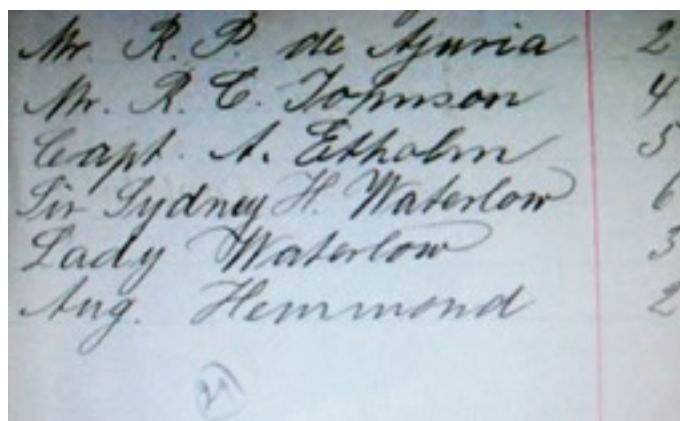 Mr. R. P. de Ajuria 2
Mr. R. C. Johnson 4
Capt. A. Etholm 5
Sir Sydney H. Waterlow 6
Lady Waterlow 3
Aug. Hemmond 2
21